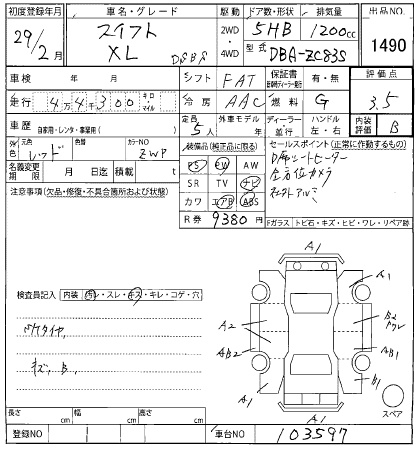 初度登録年月
29/2月
車名・グレード
スイフト
XL
駆動
2WD
4WD
ドア数・形状
5HB
排気量
1200cc
型式
DBA-ZC83S
出品NO.
1490
車検 年 月
シフト FAT
保証書
有・無
評価点
3.5
走行 4万4千300 キロ・マイル
冷房 AAC
燃料 G
車歴 自家用・レンタ・事業用( )
定員 5人
外車モデル 年
ディーラー
並行
ハンドル
左・右
内装評価 B
外色
元色
レッド
色替
カラーNO
ZWP
装備品(純正品に限る)
PS PW AW
SR TV ナビ
カワ エアB ABS
R券 9380円
セールスポイント(正常に作動するもの)
D席シートヒーター
全方位カメラ
社外アルミ
名義変更期限 月 日迄
積載 t
注意事項(欠品・修復・不具合箇所および状態)
Fガラス トビ石・キズ・ヒビ・ワレ・リペア跡
検査員記入 内装 汚・スレ・キズ・キレ・コゲ・穴
キズ、B、
A1
A1
A2
B2
AB2
AB1
A1
B1
A1
スペア
長さ cm
幅 cm
高さ cm
登録NO
車台NO 103597